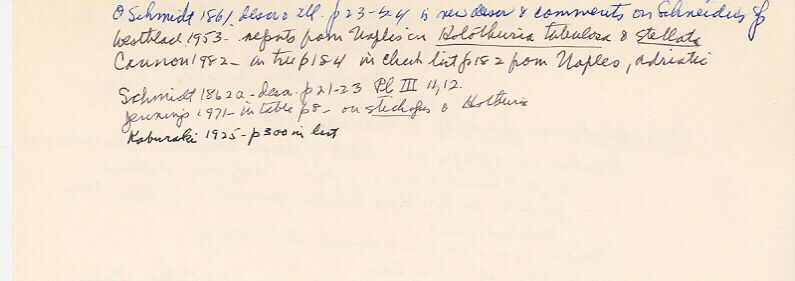 O Schmidt 1861, descr & ill. p 23-24 is new descr & comments on Schneider's sp
Westblad 1953- reports from Naples in Holothuria tubulosa & stellata
Cannon 1982- in tree p 184 in check list p 182 from Naples, Adriatic
Schmidt 1862a- descr. p 21-23 Pl III 11,12.
Jennings 1971- in table p 8- on stichopus & Holthuria
Kaburaki 1925- p 300 in list